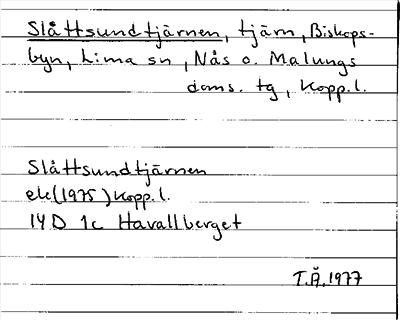 Slåttsundtjärnen, tjärn, Biskops-
byn, Lima sn, Nås o. Malungs
doms. tg, Kopp.l.
Slåttsundtjärnen
ek(1975)Kopp.l.
14D 1c Havallberget
T.Å.1977